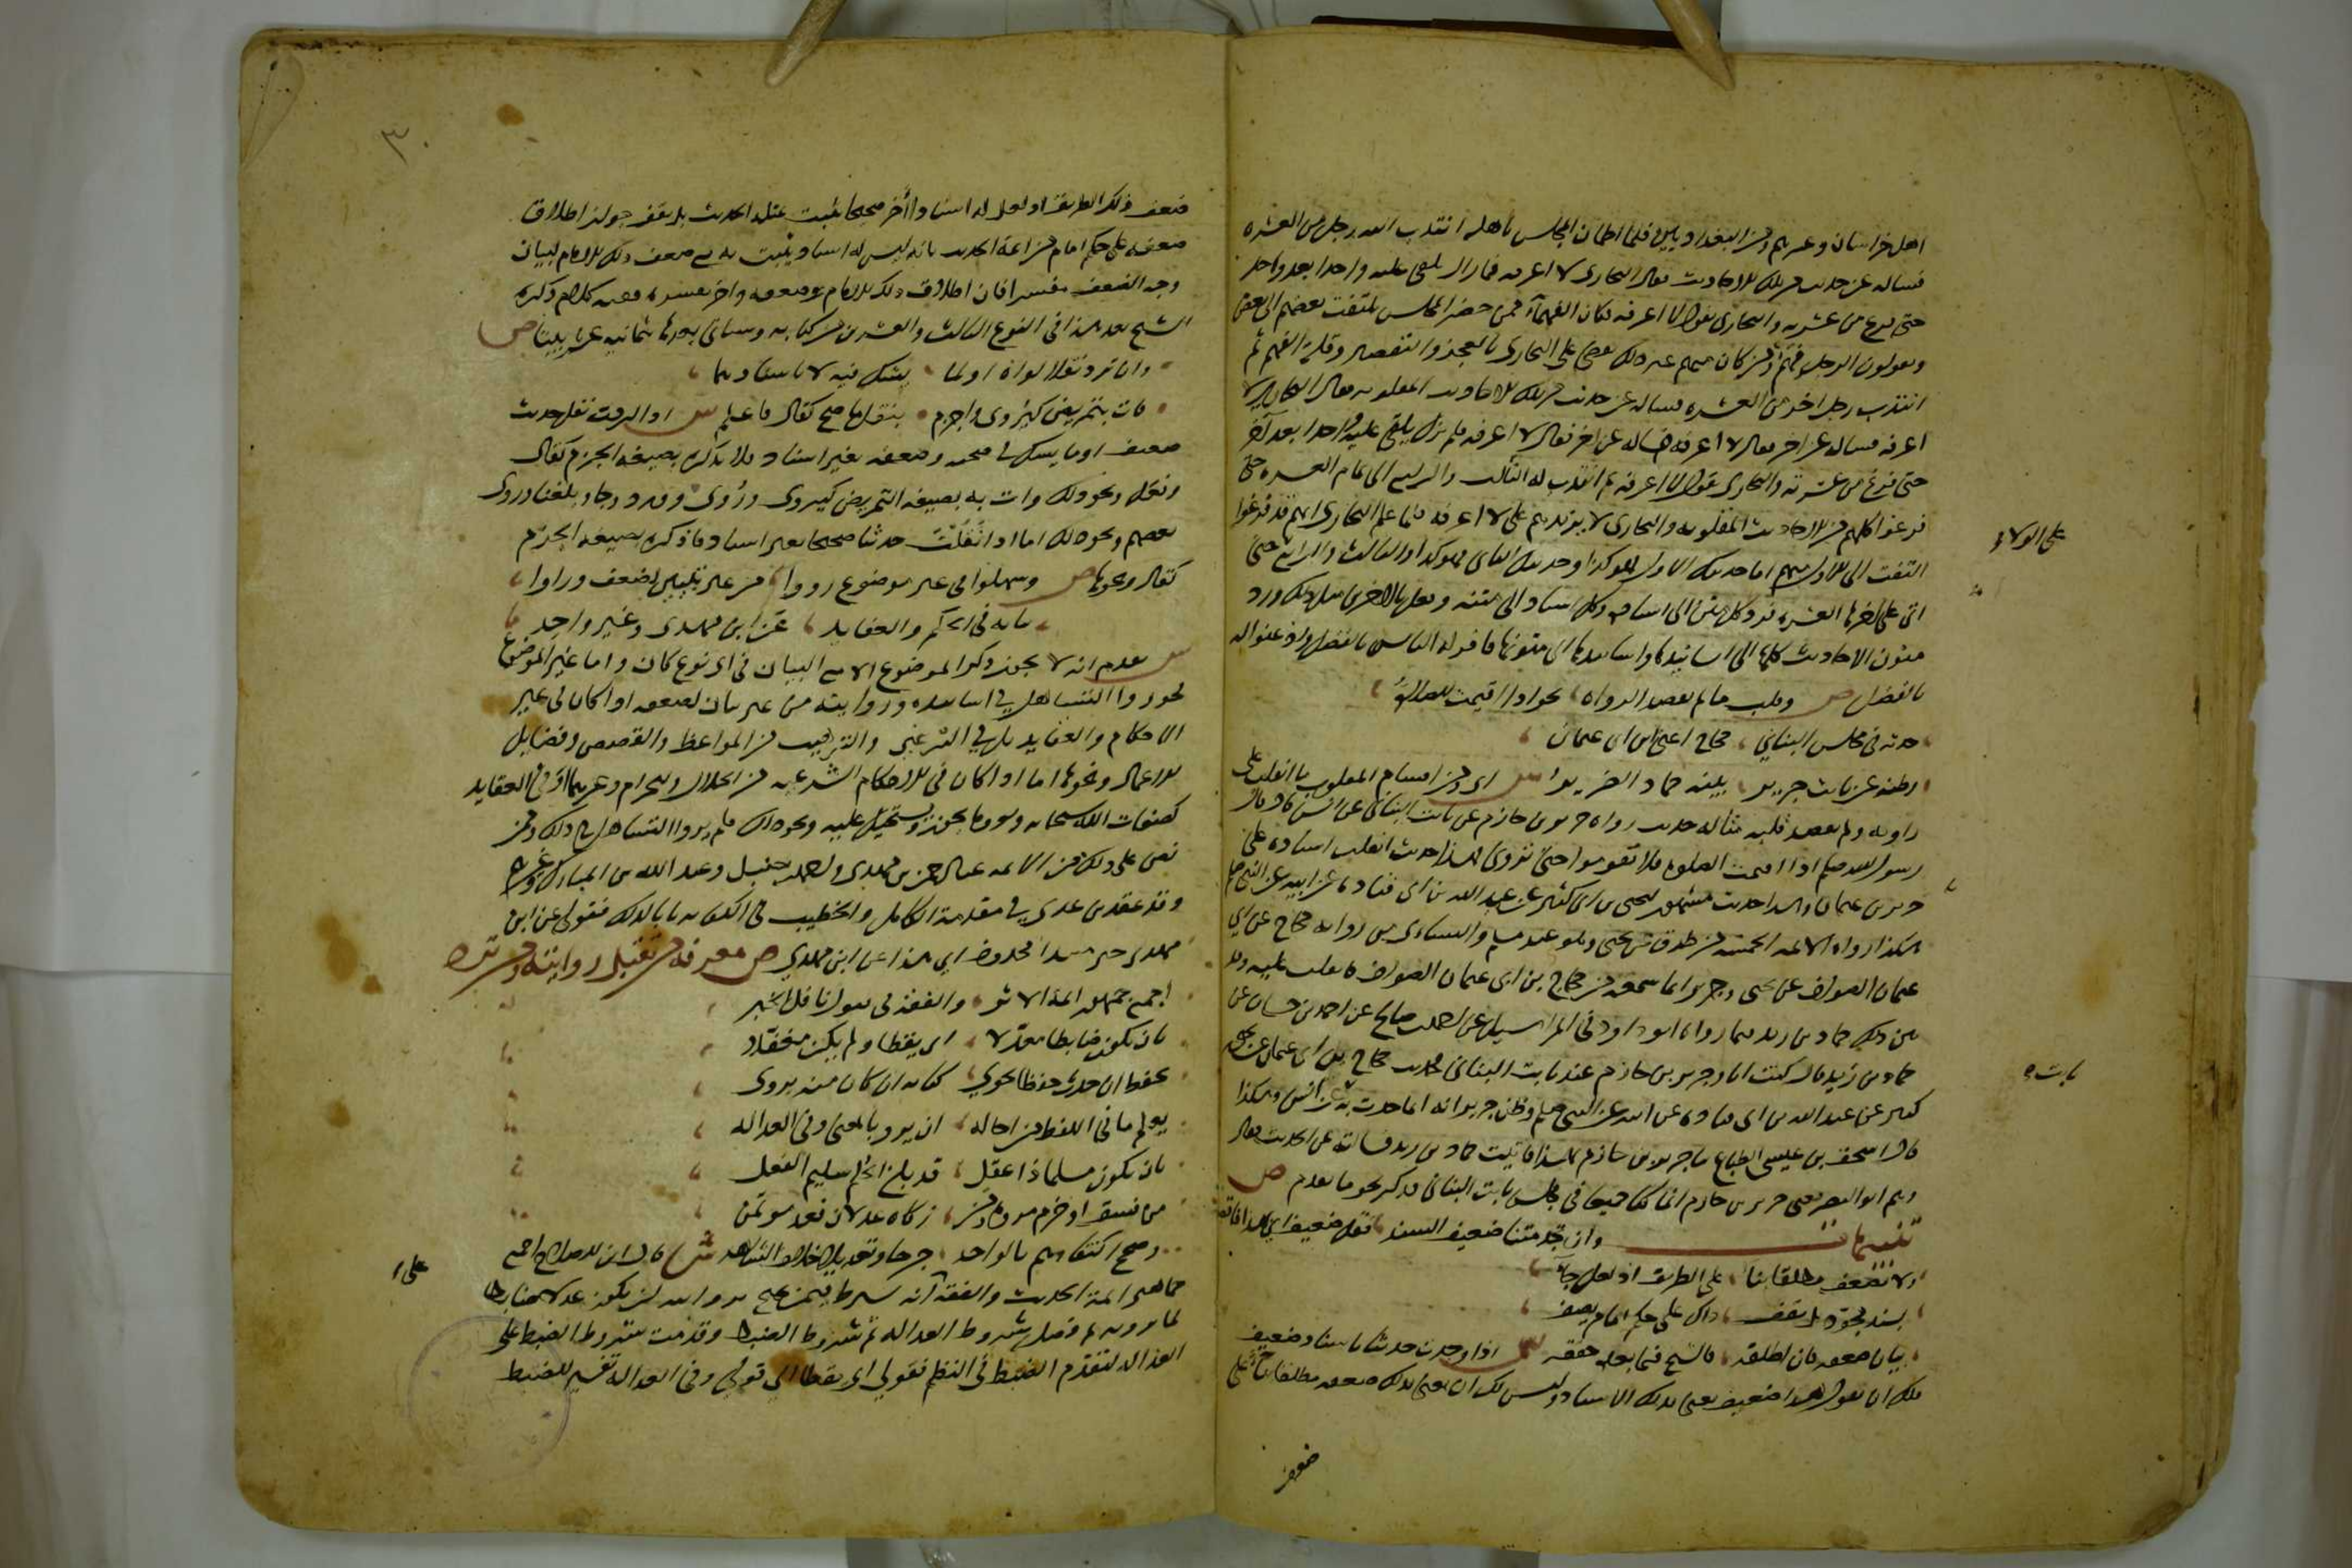 اهل خراسان وغيرهم ومن البغداديين فلما اطمان المجلس باهله انتدب اليه رجل من العشرة
فساله عن حديث من تلك الاحاديث فقال البخارى لا اعرفه فما زال يلقى عليه واحدا بعد واحد
حتى فرغ من عشرته والبخارى يقول لا اعرفه فكان الفهماء ممن حضر المجلس يلتفت بعضهم الى بعض
ويقولون الرجل فهم ومن كان منهم غير ذلك يقضى على البخارى بالعجز والتقصير وقلة الفهم ثم
انتدب رجل اخر من العشرة فساله عن حديث من تلك الاحاديث المقلوبة فقال البخارى لا
اعرفه فساله عن اخر فقال لا اعرفه فساله عن اخر فقال لا اعرفه فلم يزل يلقى عليه واحدا بعد آخر
حتى فرغ من عشرته والبخارى يقول لا اعرفه ثم انتدب له الثالث والرابع الى تمام العشرة حتى
فرغوا كلهم من الاحاديث المقلوبة والبخارى لا يزيدهم على لا اعرفه فلما علم البخارى انهم قد فرغوا
التفت الى الاول منهم اما حديثك الاول فهو كذا وحديثك الثانى فهو كذا والثالث والرابع حتى
على الولاء
اتى على اخرها العشرة فرد كل متن الى اسناده وكل اسناد الى متنه وفعل بالاخرين مثل ذلك ورد
متون الاحاديث كلها الى اسانيدها واسانيدها الى متونها فاقر له الناس بالفضل واذعنوا له
بالفضل ص وقلب ما لم يقصد الرواه نحو اذا اقيمت الصلاة
حدثه فى مجلس البنانى حجاج اعنى ابن ابى عثمان
فظنه عن ثابت جرير بينه حماد الضرير ش اى ومن اقسام المقلوب ما انقلب على
راويه ولم يقصد قلبه مثاله حديث رواه جرير بن حازم عن ثابت البنانى عن انس قال قال
رسول الله صلعم اذا اقيمت الصلوة فلا تقوموا حتى ترونى فهذا حديث انقلب اسناده على
جرير بن حازم وهذا حديث مشهور ليحيى بن ابى كثير عن عبد الله بن ابى قتادة عن ابيه عن النبى صلعم
هكذا رواه الائمة الخمسة من طرق عن يحيى وهو عند مسلم والنساى من رواية حجاج بن ابى
عثمان الصواف عن يحيى وجرير انما سمعه من حجاج بن ابى عثمان الصواف فانقلب عليه وقد
بين ذلك حماد بن زيد فيما رواه ابو داود فى المراسيل عن احمد بن صالح عن يحيى بن حسان عن
حماد بن زيد قال كنت انا وجرير بن حازم عند ثابت البنانى فحدث حجاج بن ابى عثمان عن يحيى بن
كثير عن عبد الله بن ابى قتادة عن ابيه عن النبى صلعم وظن جرير انه انما حدث به ثابت عن انس وهكذا
ثابت ه
قال اسحق بن عيسى الطباع ثنا جرير بن حازم بهذا فاتيت حماد بن زيد فسالته عن الحديث فقال
وهم ابو النضر يعنى جرير بن حازم انما كنا جميعا فى مجلس ثابت البنانى فذكر نحو ما تقدم ص
تنبيهات وان تجد متنا ضعيف السند فقل ضعيف اى بهذا فاقصد
ولا تضعف مطلقا بنا على الطريق اذ لعل جا
بسند مجود بل يقف ذاك على حكم امام يصف
بيان ضعفه فان اطلقه فالشيخ فيما بعد حققه ش اذا وجدت حديثا باسناد ضعيف
فلك ان تقول هذا ضعيف يعنى بذلك الاسناد وليس لك ان تعنى بذلك ضعفه مطلقا بناء على
ضعف
٣٠
ضعف ذلك الطريق اذ لعل له اسنادا آخر صحيحا يثبت بمثله الحديث بل يقف جواز اطلاق
ضعفه على حكم امام من ائمة الحديث بانه ليس له اسناد يثبت به مع وصف ذلك الامام لبيان
وجه الضعف مفسرا فان اطلاق ذلك الامام ضعفه ولم يفسره ففيه كلام ذكره
الشيخ بعد هذا فى النوع الثالث والعشرين من كتابه وسياتى بعد ثمانية عشر بيتا ص
وان ترد نقلا لواه او لما يشك فيه لا باسنادهما
فات بتمريض كيروى واجزم بنقل ما صح كقال فاعلم ش اذا اردت نقل حديث
ضعيف او ما يشك فى صحته وضعفه بغير اسناد فلا تذكره بصيغة الجزم كقال
وفعل ونحو ذلك وات به بصيغة التمريض كيروى وروى وورد وجاء وبلغنا وروى
بعضهم ونحو ذلك اما اذا نقلت حديثا صحيحا بغير اسناد فاذكره بصيغة الجزم
كقال ونحوها ص وسهلوا فى غير موضوع رووا من غير تبيين لضعف وراوا
بيانه فى الحكم والعقايد عن ابن مهدى وغير واحد
ش تقدم انه لا يجوز ذكر الموضوع الا مع البيان فى اى نوع كان واما غير الموضوع
فجوزوا التساهل فى اسناده وروايته من غير بيان لضعفه اذا كان فى غير
الاحكام والعقايد بل فى الترغيب والترهيب من المواعظ والقصص وفضايل
الاعمال ونحوها اما اذا كان فى الاحكام الشرعية من الحلال والحرام وغيرهما او فى العقايد
كصفات الله سبحانه وتعالى وما يجوز ويستحيل عليه ونحو ذلك فلم يروا التساهل فى ذلك وممن
نص على ذلك من الائمة عبد الرحمن بن مهدى واحمد بن حنبل وعبد الله بن المبارك وغيرهم
وقد عقد ابن عدى فى مقدمة الكامل والخطيب فى الكفاية بابا لذلك فقولى عن ابن
مهدى خبر مبتدا محذوف اى هذا عن ابن مهدى ص معرفة من تقبل روايته ومن ترد
اجمع جمهور ائمة الاثر والفقه فى قبول ناقل الخبر
بان يكون ضابطا معدلا اى يقظا ولم يكن مغفلا
يحفظ ان حدث حفظا يحوى كتابه ان كان منه يروى
يعلم ما فى اللفظ من احاله ان يرو بالمعنى وفى العداله
بان يكون مسلما ذا عقل قد بلغ الحلم سليم الفعل
من فسق او خرم مروة ومن زكاه عدلان فعدل موتمن
وصحح اكتفاوهم بالواحد جرحا وتعديلا خلاف الشاهد ش قال ابن الصلاح اجمع
جماهير ائمة الحديث والفقه انه يشترط فيمن يحتج بروايته ان يكون عدلا ضابطا
على
لما يرويه ثم فصل شروط العدالة ثم شروط الضبط وقدمت شروط الضبط على
العدالة لتقدم الضبط فى النظم فقولى اى يقظا الى قولى وفى العدالة تفسير للضبط